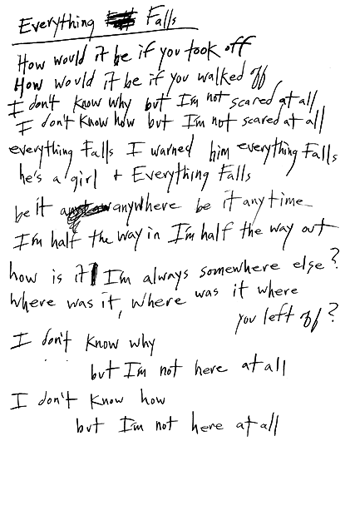 Everything Falls
How would it be if you took off
How would it be if you walked off
I don't know why but I'm not scared at all
I don't know how but I'm not scared at all
everything Falls I warned him everything Falls
he's a girl + Everything Falls
be it anywhere be it anytime
I'm half the way in I'm half the way out
how is it I'm always somewhere else?
where was it, where was it where
you left off?
I don't know why
but I'm not here at all
I don't know how
but I'm not here at all